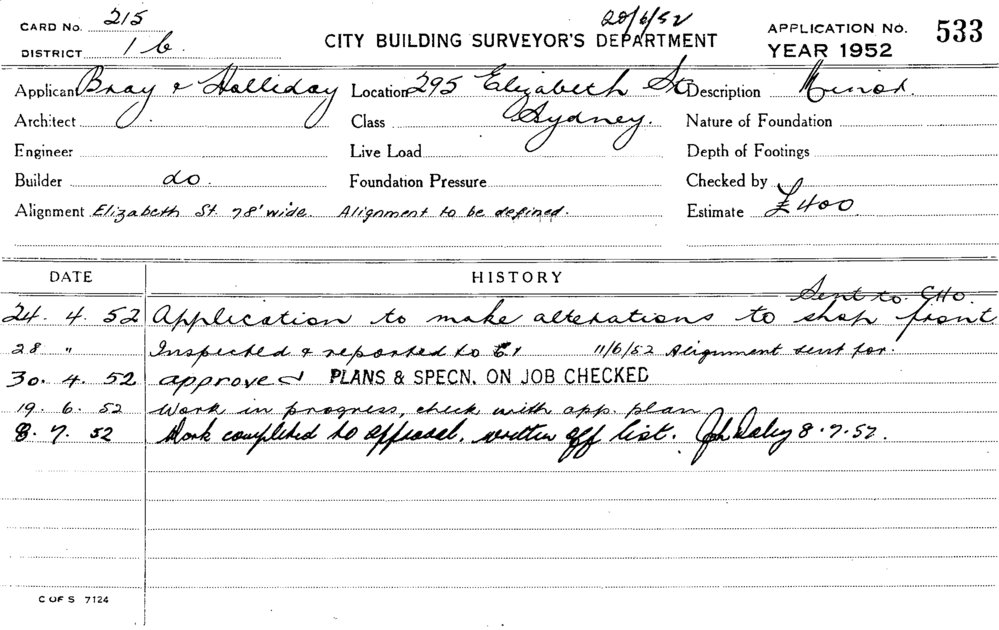 CARD No. 215
20/6/52
APPLICATION No. 533
DISTRICT 1 b.
CITY BUILDING SURVEYOR'S DEPARTMENT
YEAR 1952
Applicant Bray & Halliday Location 295 Elizabeth St Description Minor.
Architect Class Sydney. Nature of Foundation
Engineer Live Load Depth of Footings
Builder do. Foundation Pressure Checked by
Alignment Elizabeth St. 78' wide. Alignment to be defined. Estimate £400
DATE HISTORY
Sent to CHO.
24. 4. 52 Application to make alterations to shop front
28 " Inspected & reported to 11/6/52 Alignment sent for.
30. 4. 52 approved PLANS & SPECN. ON JOB CHECKED
19. 6. 52 Work in progress, check with app. plan
8. 7. 52 Work completed to approval, written off list. 8.7.52.
C OF S 7124